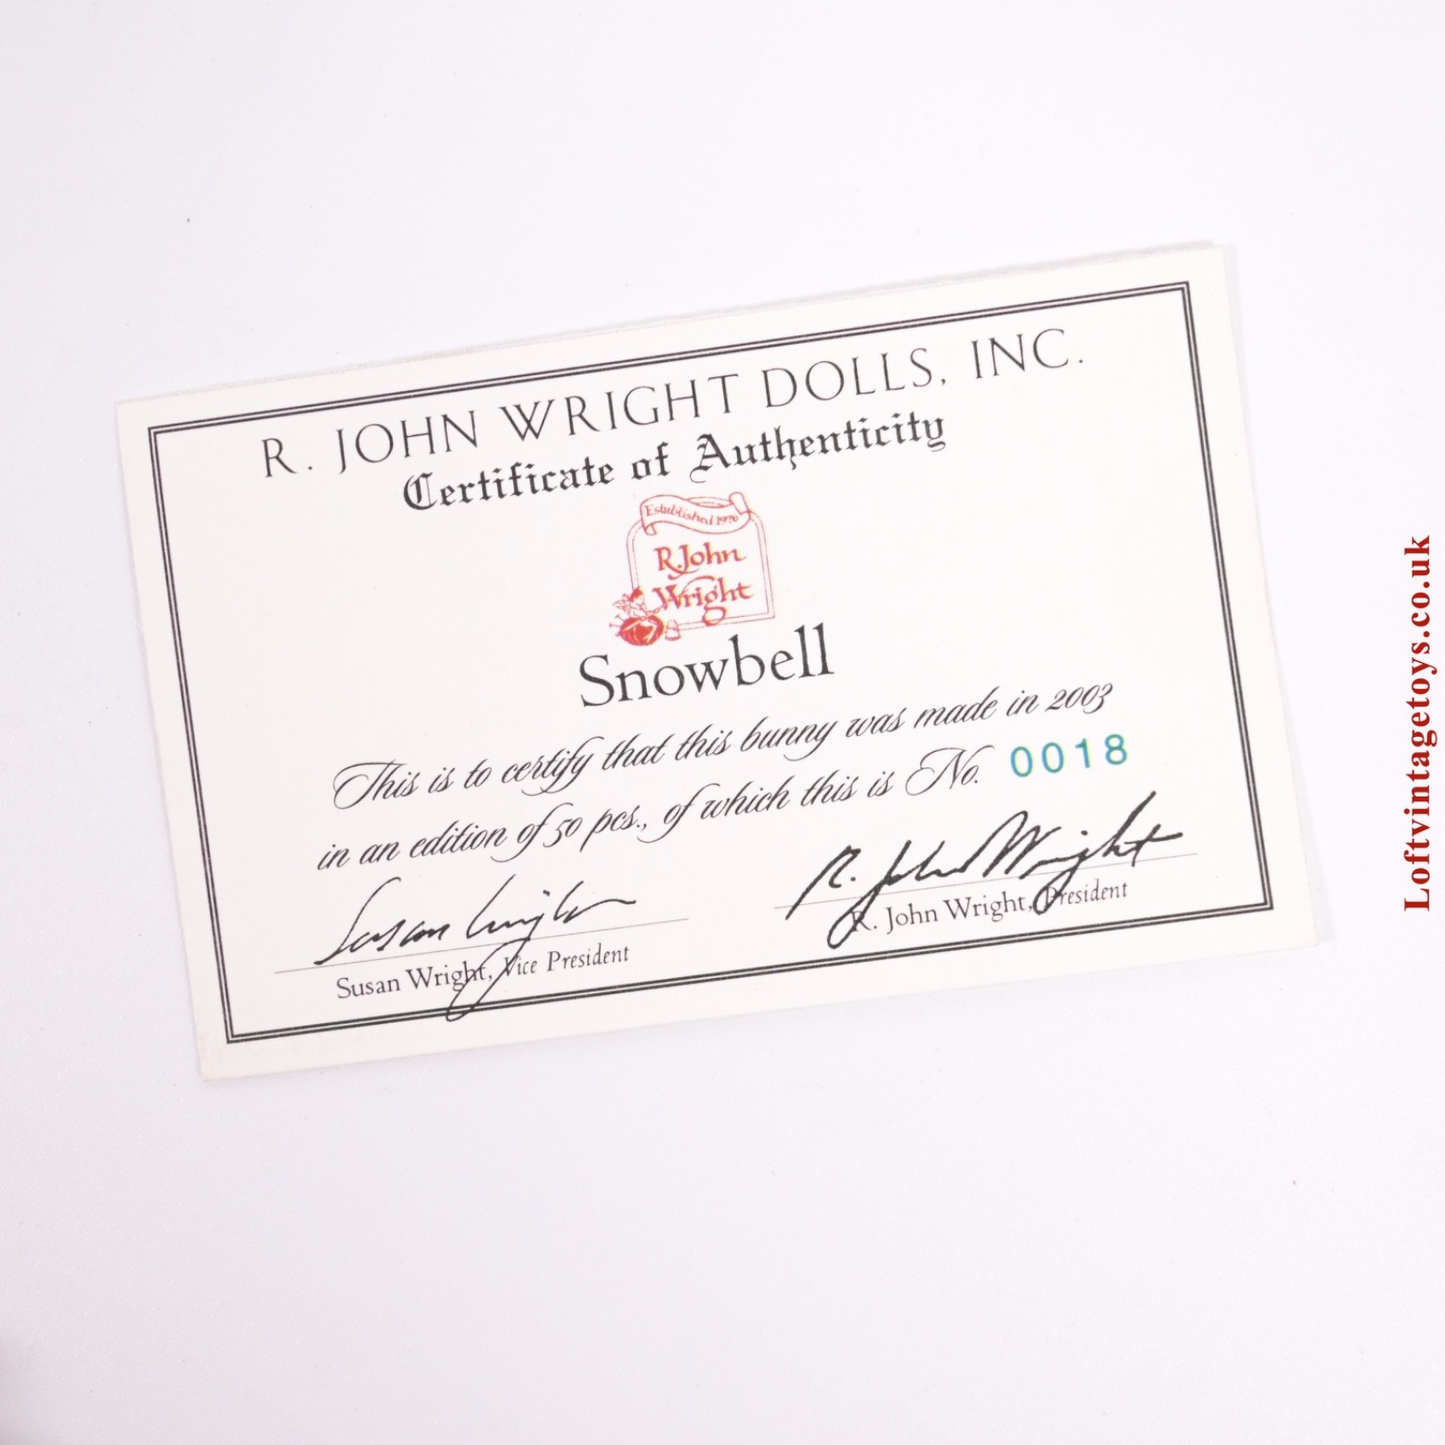 R. JOHN WRIGHT DOLLS, INC.
Certificate of Authenticity
Established 1976
R. John
Wright
Snowbell
This is to certify that this bunny was made in 2003
in an edition of 50 pcs., of which this is No. 0018
Susan Wright
R. John Wright
Susan Wright, Vice President
R. John Wright, President
Loftvintagetoys.co.uk